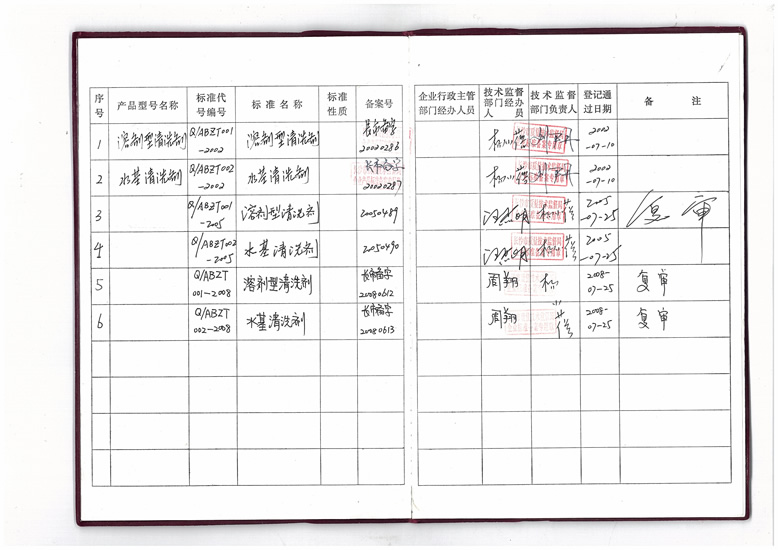 序号 产品型号名称 标准代号编号 标准名称 标准性质 备案号 企业行政主管部门经办人员 技术监督部门经办人员 技术监督部门负责人 登记通过日期 备注
1 溶剂型清洗剂 Q/ABZT001-2002 溶剂型清洗剂 20020286 2002-07-10
2 水基清洗剂 Q/ABZT002-2002 水基清洗剂 长市备字20020287 2002-07-10
3 Q/ABZT001-2005 溶剂型清洗剂 20050489 2005-07-25 复审
4 Q/ABZT002-2005 水基清洗剂 20050490 2005-07-25
5 Q/ABZT001-2008 溶剂型清洗剂 长市备字20080612 周翔 2008-07-25 复审
6 Q/ABZT002-2008 水基清洗剂 长市备字20080613 周翔 2008-07-25 复审